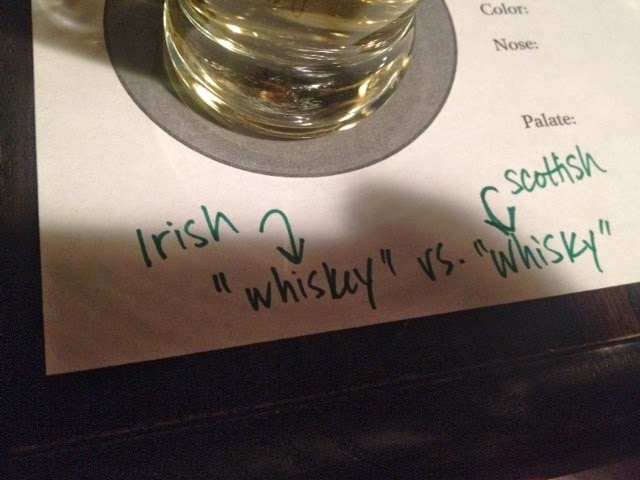 Color:
Nose:
Palate:
Irish
scottish
"whiskey" vs. "whisky"